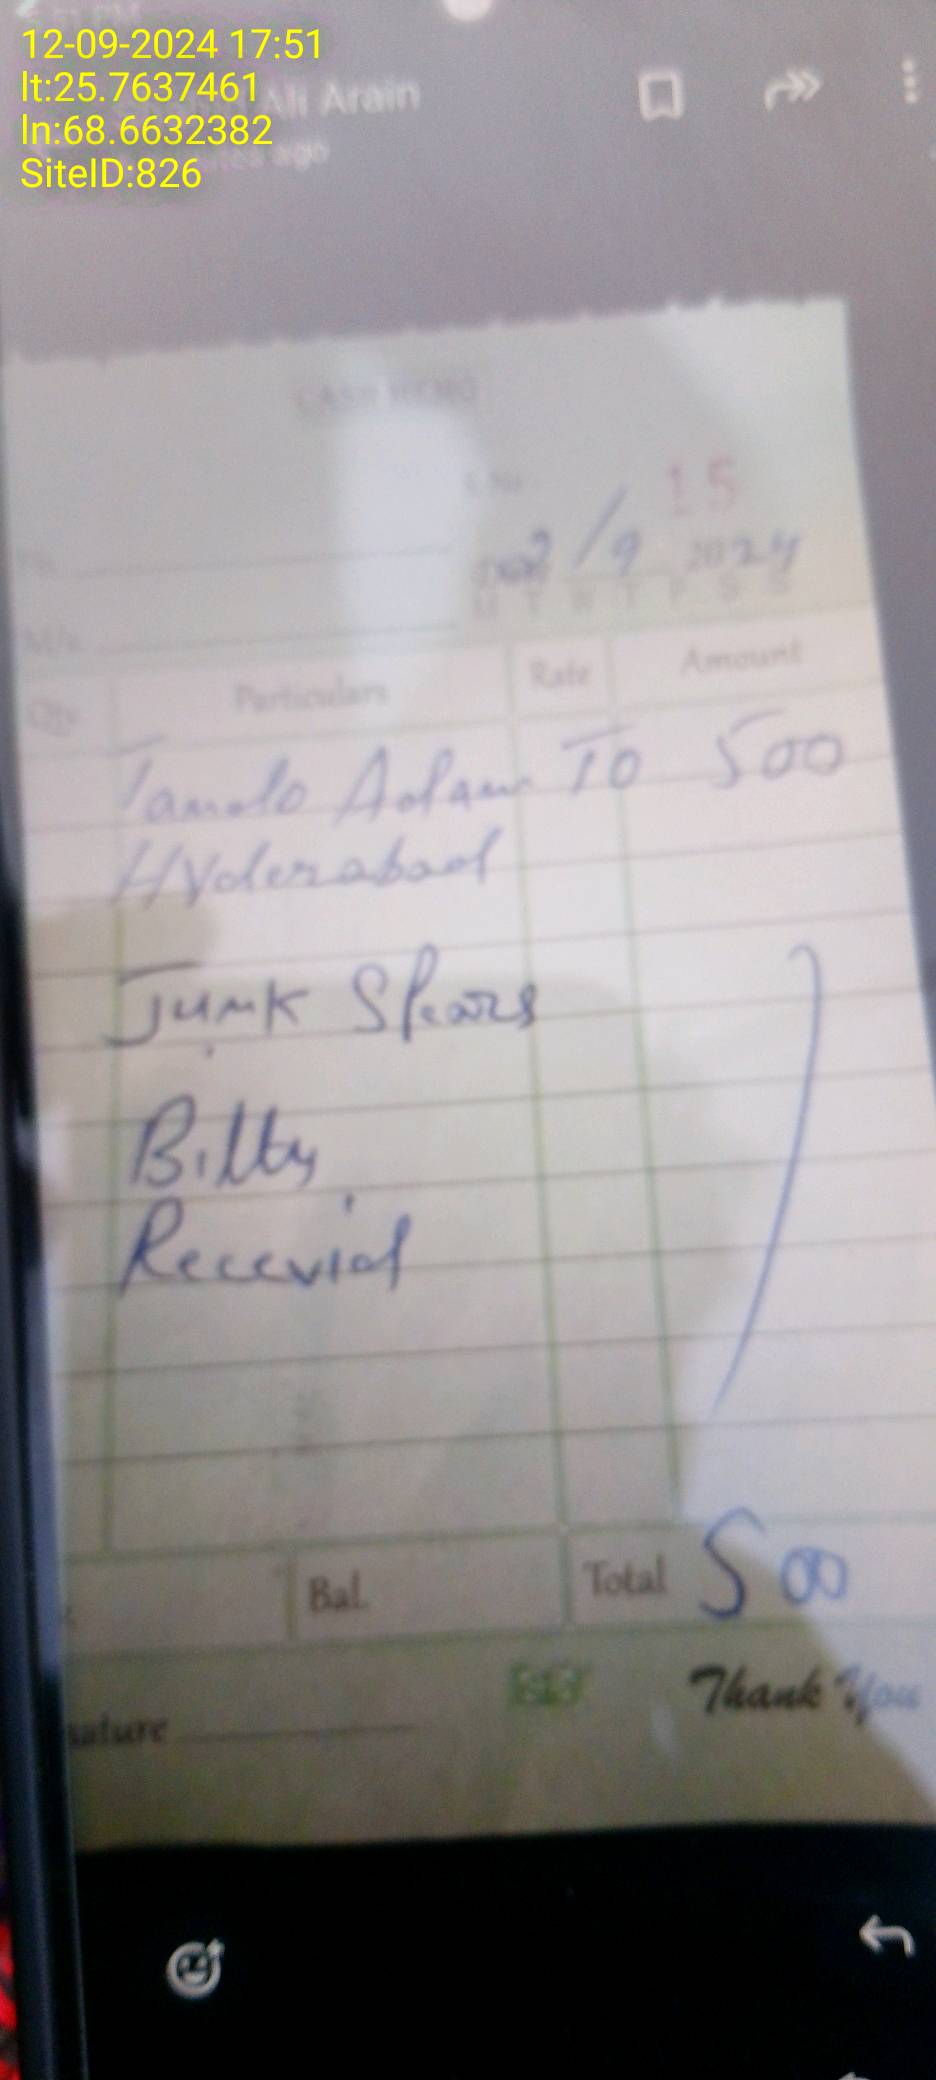 12-09-2024 17:51
lt:25.7637461
ln:68.6632382
SiteID:826
Ali Arain
ago
CASH MEMO
15
2/9 2024
M T W T F S S
M/s
Qty. Particulars Rate Amount
Tando Adam To 500
Hyderabad
Junk Spears
Bilty
Recevied
Bal. Total 500
Thank You
nature